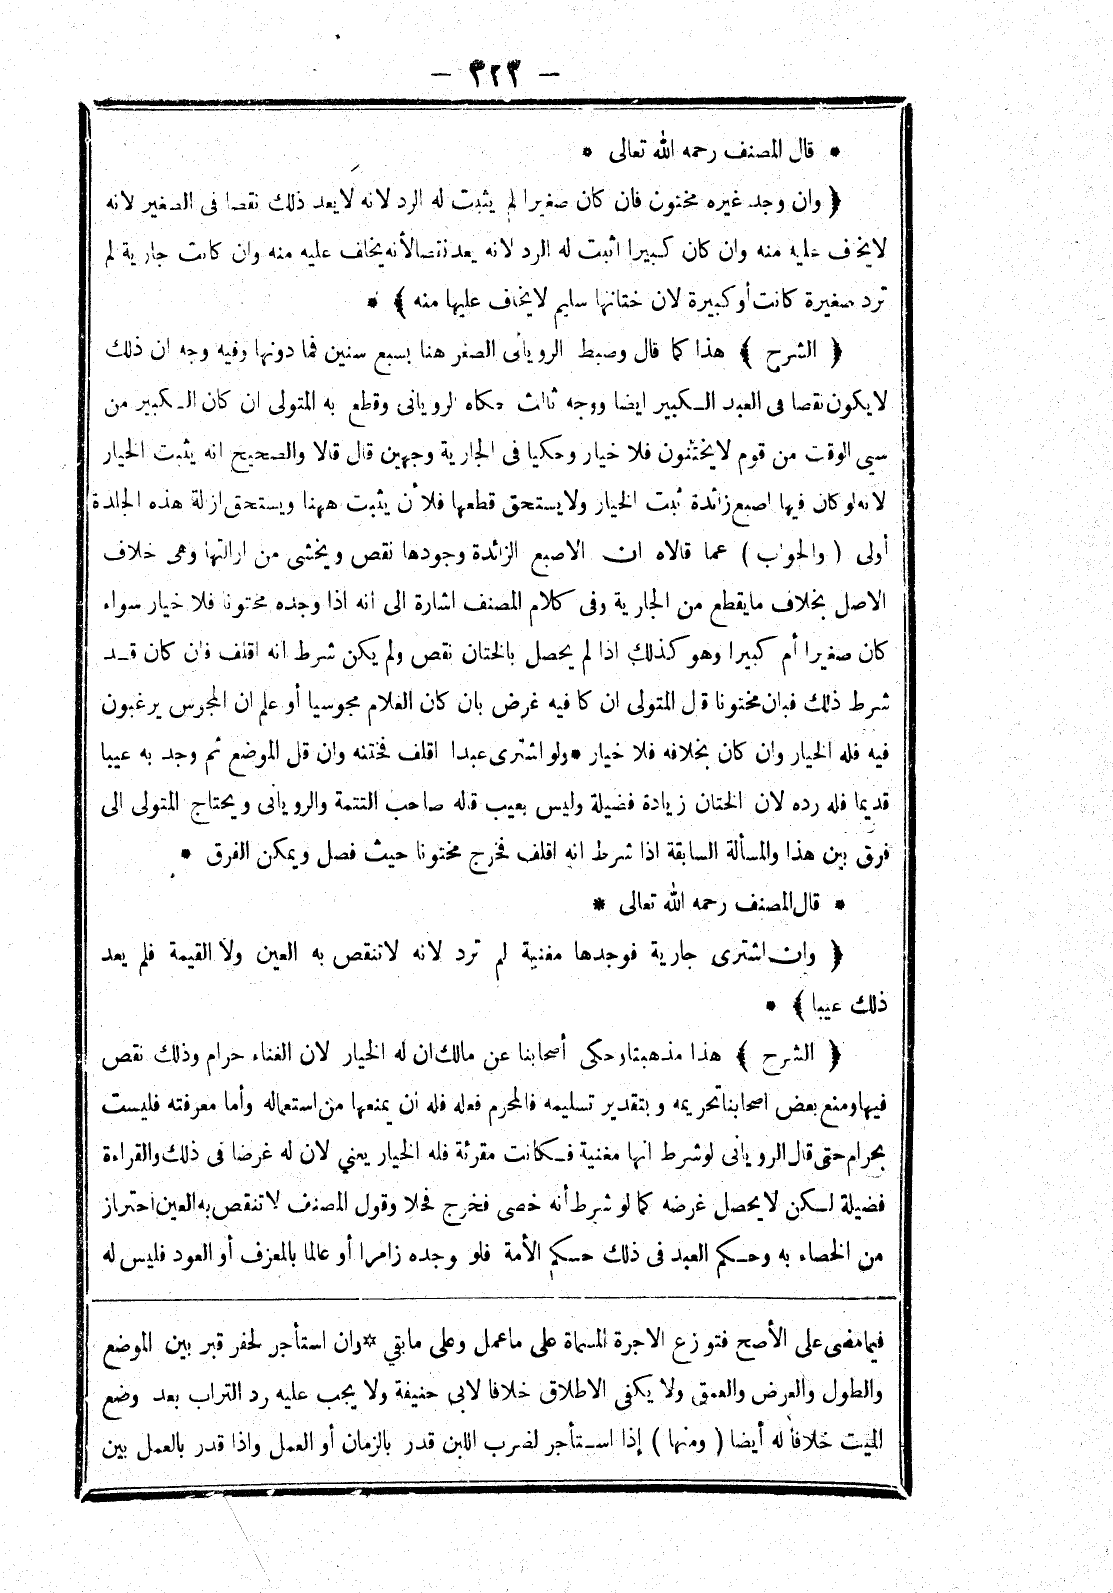 — ٣٢٣ —
* قال المصنف رحمه الله تعالى *
﴿ وان وجد غيره مختون فان كان صغيرا لم يثبت له الرد لانه لا يعد ذلك نقصا فى الصغير لانه
لايخاف عليه منه وان كان كـبيرا اثبت له الرد لانه يعد نقصا لأنه يخاف عليه منه وان كانت جارية لم
ترد صغيرة كانت أو كبيرة لان ختانها سليم لايخاف عليها منه ﴾ *
﴿ الشرح ﴾ هذا كما قال وضبط الرويانى الصغر هنا بسبع سنين فما دونها وفيه وجه ان ذلك
لا يكون نقصا فى العبد الـكبير ايضا ووجه ثالث حكاه الرويانى وقطع به المتولى ان كان الـكبير من
سبي الوقت من قوم لايختنون فلا خيار وحكيا فى الجارية وجهين قال قالا والصحيح انه يثبت الخيار
لانه لو كان فيها اصبع زائدة ثبت الخيار ولا يستحق قطعها فلأن يثبت ههنا ويستحق ازلة هذه الجلدة
أولى ( والجواب ) عما قالاه ان الاصبع الزائدة وجودها نقص ويخشى من ازالتها وهى خلاف
الاصل بخلاف مايقطع من الجارية وفى كلام المصنف اشارة الى انه اذا وجده مختونا فلا خيار سواء
كان صغيرا أم كبيرا وهو كذلك اذا لم يحصل بالختان نقص ولم يكن شرط انه اقلف فان كان قـد
شرط ذلك فبان مختونا قال المتولى ان كا فيه غرض بان كان الغلام مجوسيا أو علم ان المجوس يرغبون
فيه فله الخيار وان كان بخلافه فلا خيار * ولو اشترى عبدا اقلف فختنه وان قل الموضع ثم وجد به عيبا
قديما فله رده لان الختان زيادة فضيلة وليس بعيب قاله صاحب التتمة والرويانى ويحتاج المتولى الى
فرق بين هذا والمسألة السابقة اذا شرط انه اقلف فخرج مختونا حيث فصل ويمكن الفرق *
* قال المصنف رحمه الله تعالى *
﴿ وان اشترى جارية فوجدها مغنية لم ترد لانه لاتنقص به العين ولا القيمة فلم يعد
ذلك عيبا ﴾ *
﴿ الشرح ﴾ هذا مذهبنا وحكى أصحابنا عن مالك ان له الخيار لان الغناء حرام وذلك نقص
فيها ومنع بعض اصحابنا تحريمه وبتقدير تسليمه فالمحرم فعله فله أن يمنعها من استعماله وأما معرفته فليست
بحرام حتى قال الرويانى لو شرط انها مغنية فـكانت مقرئة فله الخيار يعني لان له غرضا فى ذلك والقراءة
فضيلة لـكن لا يحصل غرضه كما لو شرط أنه خصى فخرج فحلا وقول المصنف لا تنقص به العين احتراز
من الخصاء به وحـكم العبد فى ذلك حـكم الأمة فلو وجده زامرا أو عالما بالمعزف أو العود فليس له
فيما مضى على الأصح فتوزع الاجرة المسماة على ما عمل وعلى ما بقي * وان استأجر لحفر قبر بين الموضع
والطول والعرض والعمق ولا يكفى الاطلاق خلافا لابى حنيفة ولا يجب عليه رد التراب بعد وضع
الميت خلافا له أيضا ( ومنها ) إذا اسـتأجر لضرب اللبن قدر بالزمان أو العمل واذا قدر بالعمل بين